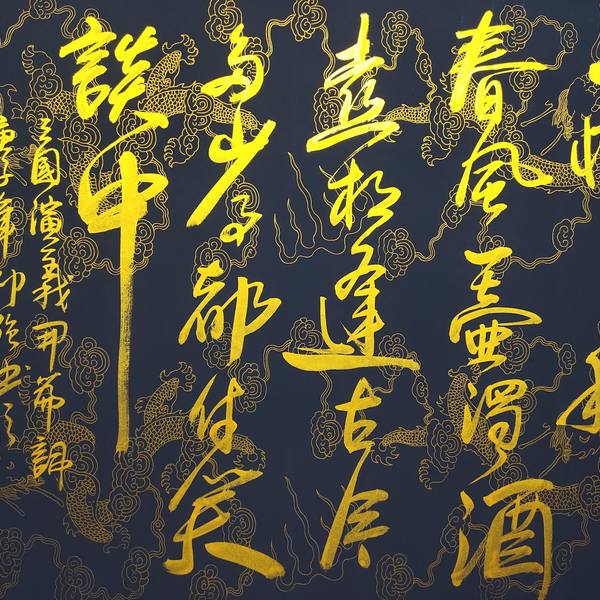 春風一壺濁酒
喜相逢古今
多少事都付笑
談中
三國演義開篇詞
庚子年